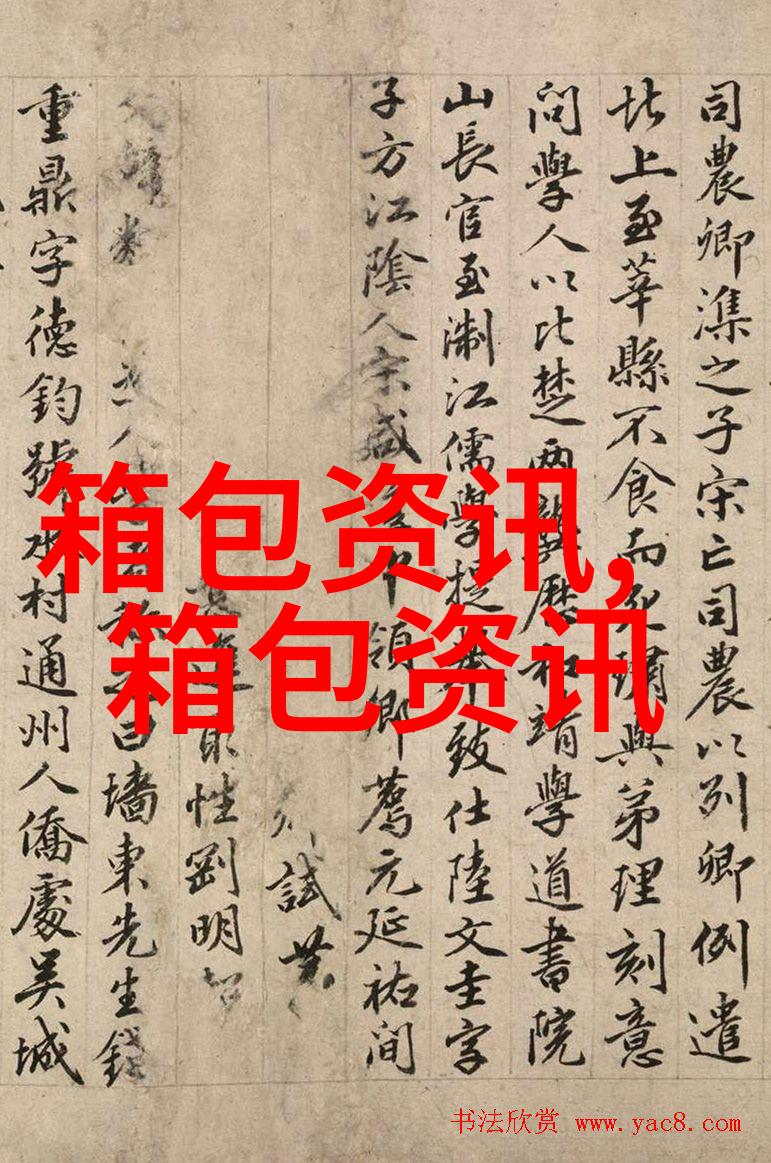 司農卿潗之子宋亡司農以列卿例遣
北上至莘縣不食而死璛與弟理刻意
问學人以比楚两龔歷和靖學道書院
山長官至淛江儒學提舉致仕陸文圭字
子方江陰人宋咸淳中領鄉薦元延祐间
試
進取性剴明
人之曰墻東先生錢
重鼎字德鈞號水村通州人僑處吴城
箱包资讯,
箱包资讯
书法欣赏 www.yac8.com